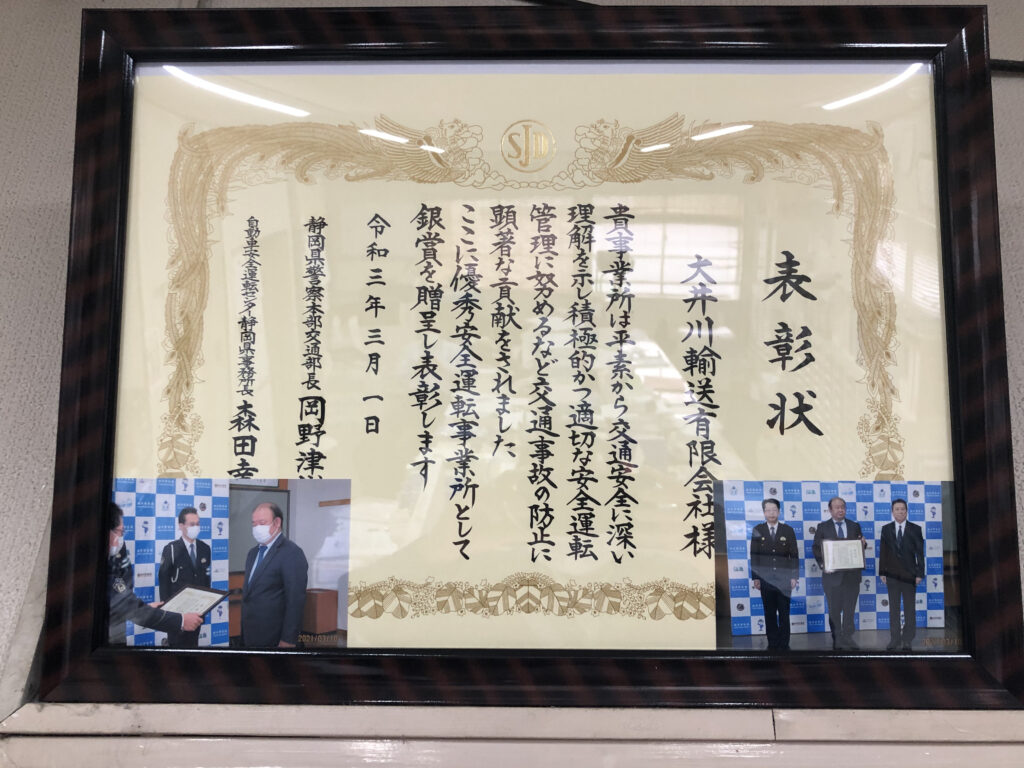 SJD
表彰状
大井川輸送有限会社様
貴事業所は平素から交通安全に深い
理解を示し積極的かつ適切な安全運転
管理に努めるなど交通事故の防止に
顕著な貢献をされました
ここに優秀安全運転事業所として
銀賞を贈呈し表彰します
令和三年三月一日
静岡県警察本部交通部長 岡野津
自動車安全運転センター静岡県事務所長 森田幸
2021/03/10